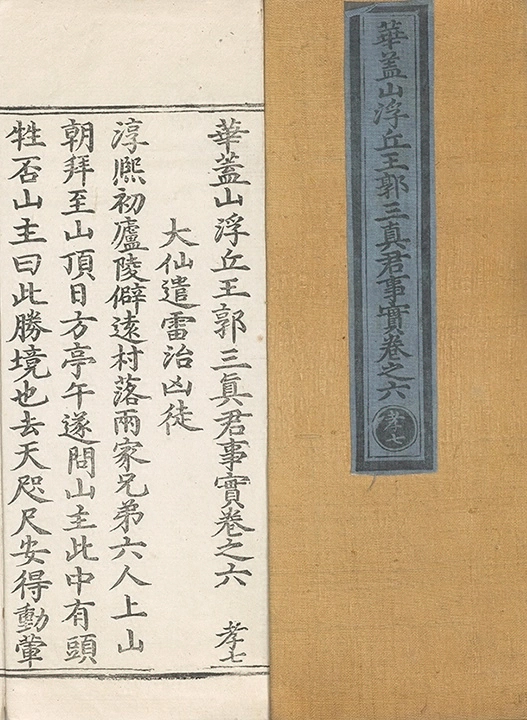 華蓋山浮丘王郭三真君事實卷之六
孝七
華蓋山浮丘王郭三眞君事實卷之六 孝七
大仙遣雷治凶徒
淳熈初廬陵僻遠村落兩家兄弟六人上山
朝拜至山頂日方亭午遂問山主此中有頭
牲否山主曰此勝境也去天咫尺安得動葷